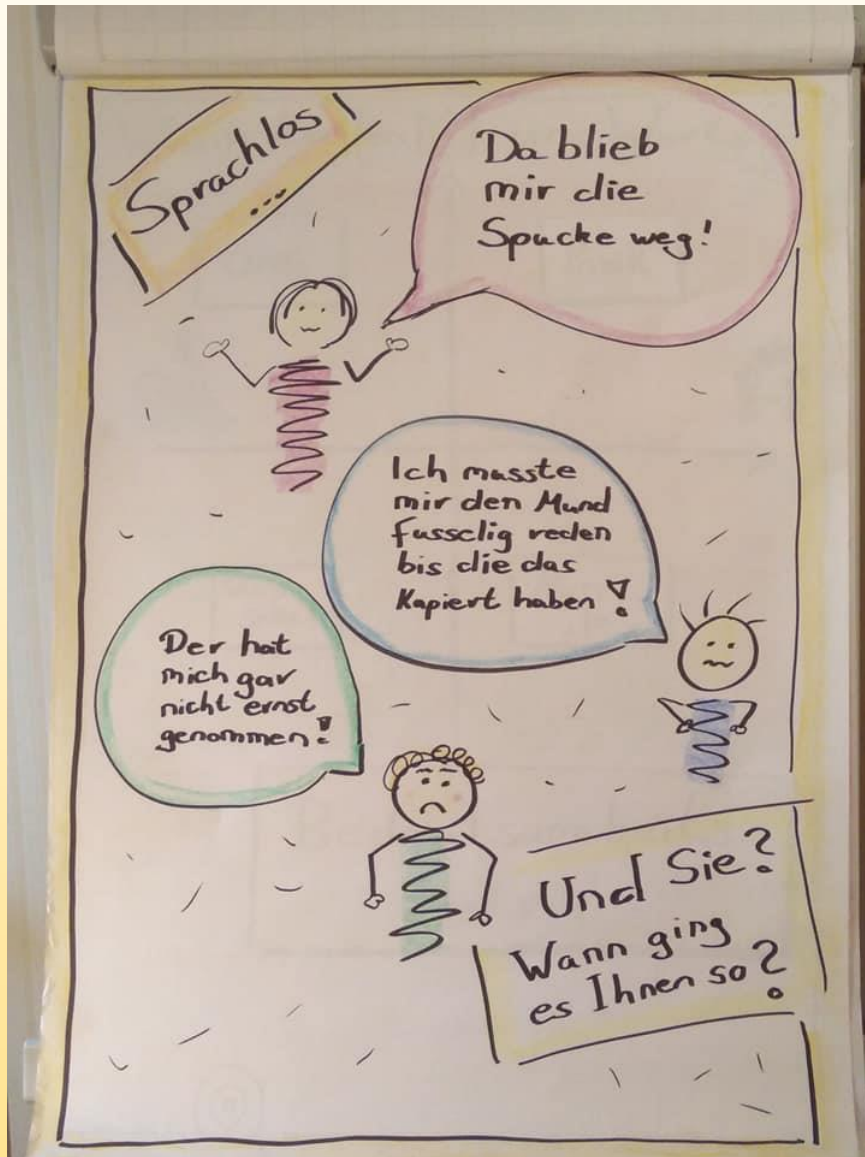 Sprachlos
...
Da blieb
mir die
Spucke weg!
Ich musste
mir den Mund
fusselig reden
bis die das
Kapiert haben!
Der hat
mich gar
nicht ernst
genommen!
Und Sie?
Wann ging
es Ihnen so?